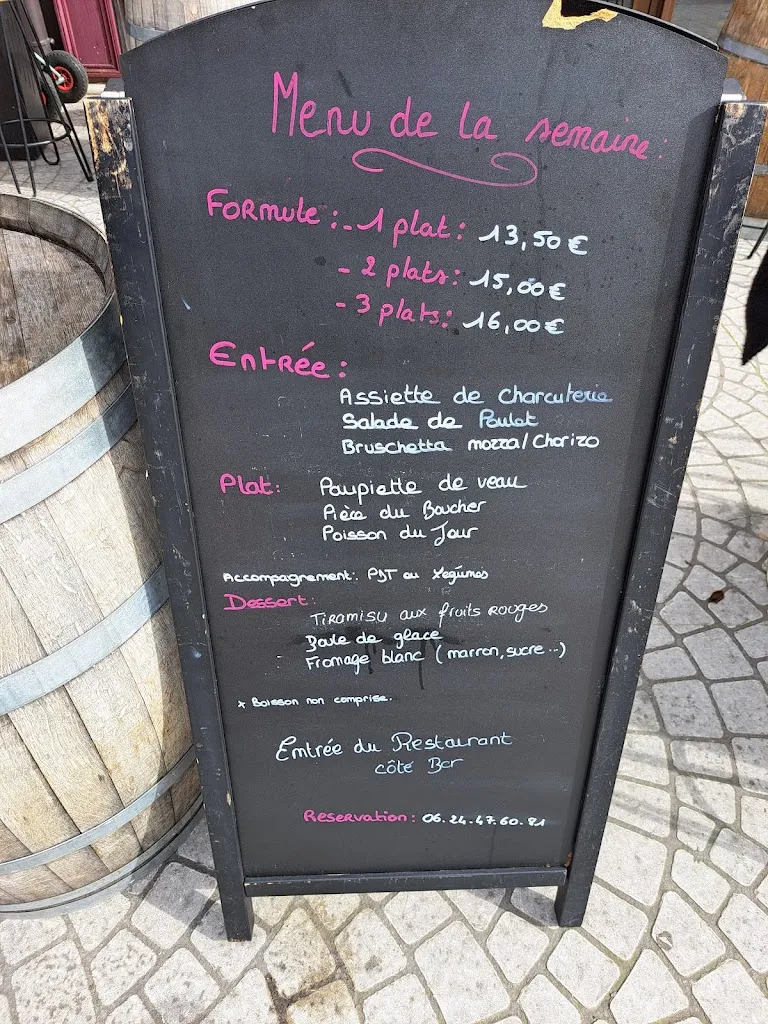 Menu de la semaine:
Formule: - 1 plat: 13,50€
- 2 plats: 15,00€
- 3 plats: 16,00€
Entrée:
Assiette de charcuterie
Salade de Poulet
Bruschetta mozza/Chorizo
Plat: Paupiette de veau
Pièce du Boucher
Poisson du Jour
Accompagnement: PDT ou Légumes
Dessert:
Tiramisu aux fruits rouges
Boule de glace
Fromage blanc (marron, sucre...)
* Boisson non comprise.
Entrée du Restaurant
côté Bar
Reservation: 06.24.47.60.81